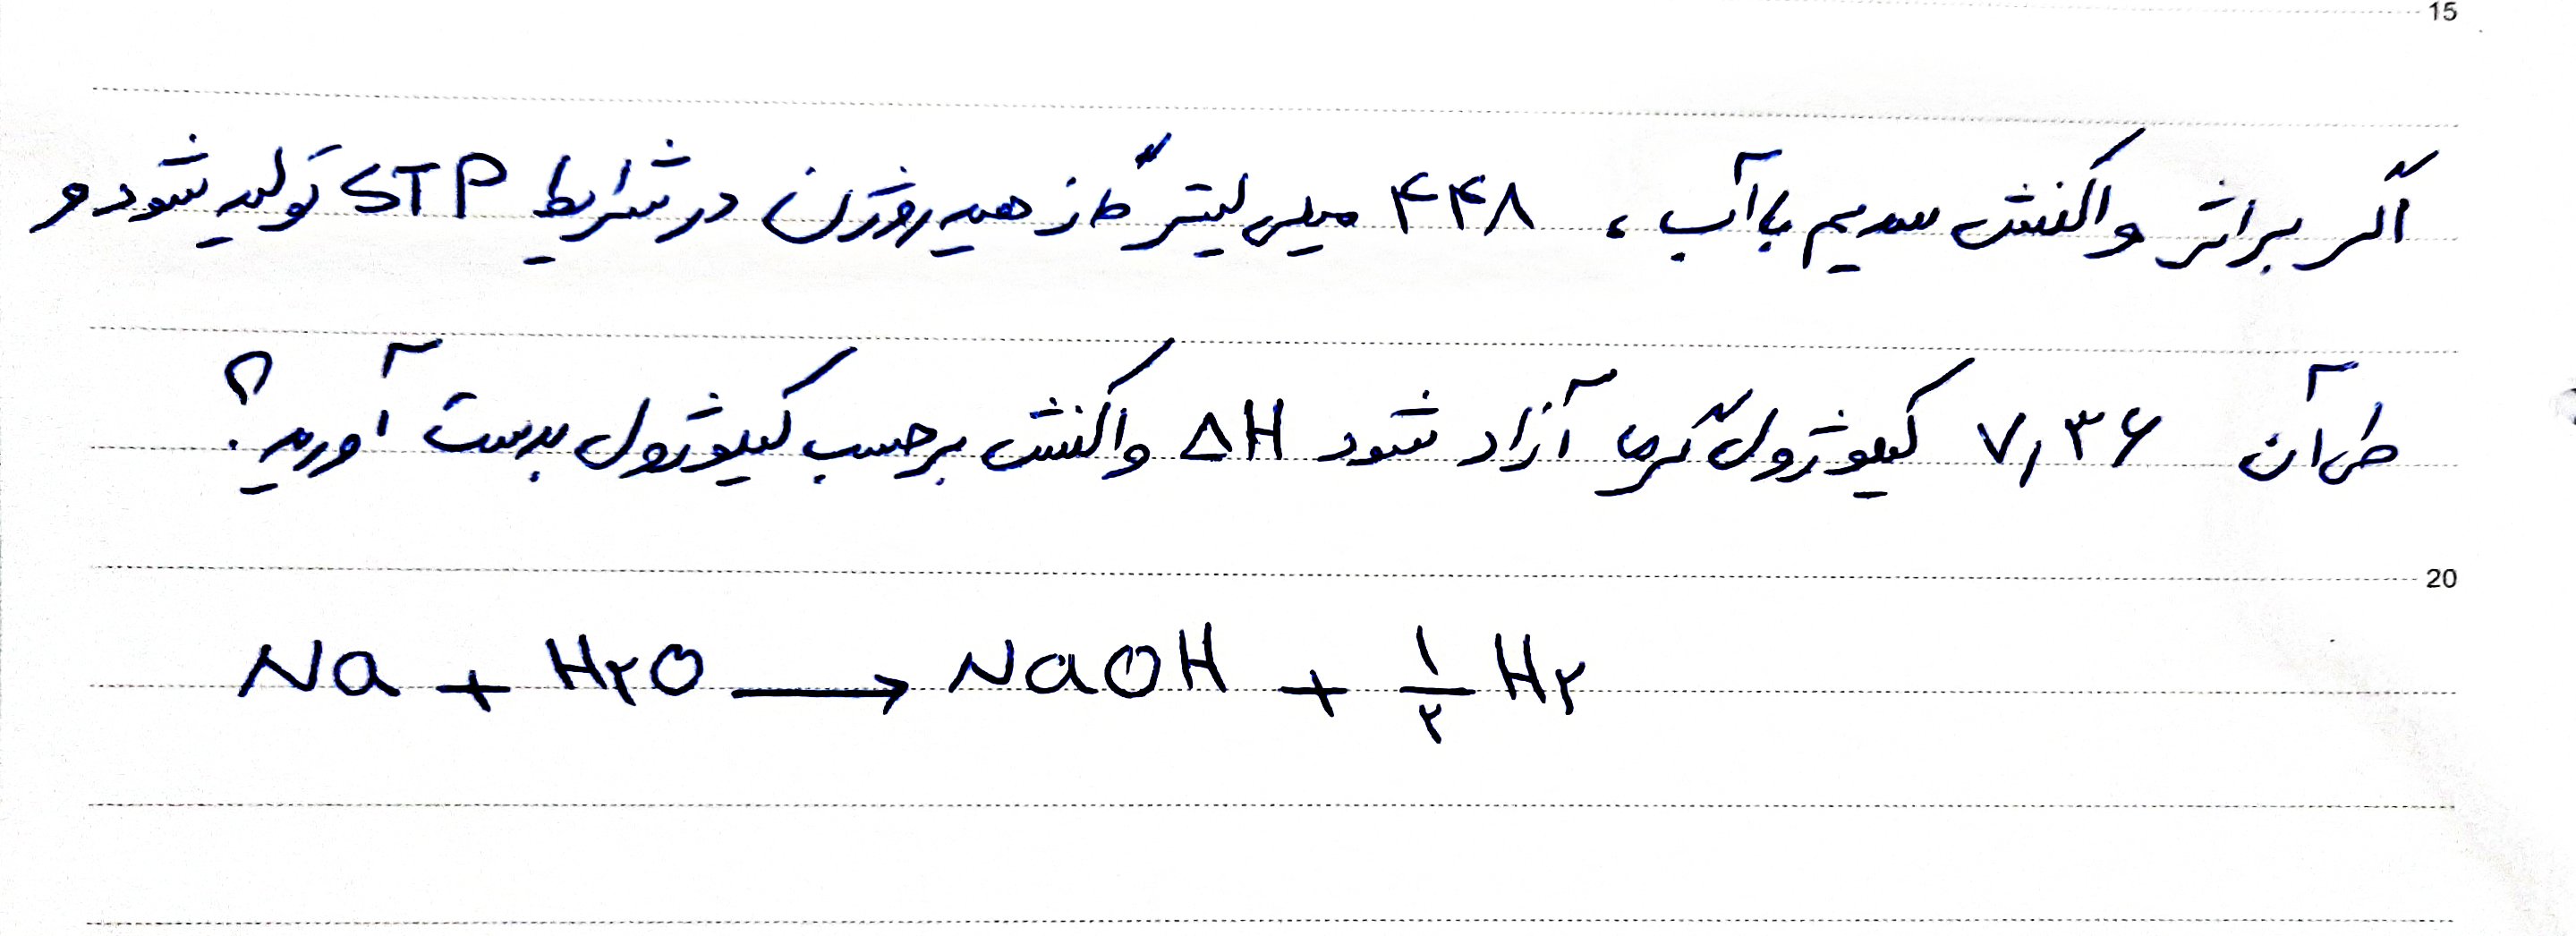 15
اگر براثر واکنش سدیم با آب، ۴۴۸ میلی لیتر گاز هیدروژن در شرایط STP تولید شود و
طی آن ۷,۳۶ کیلوژول گرما آزاد شود ΔH واکنش برحسب کیلوژول بدست آورید؟
20
Na + H۲O → NaOH + ۱/۲ H۲